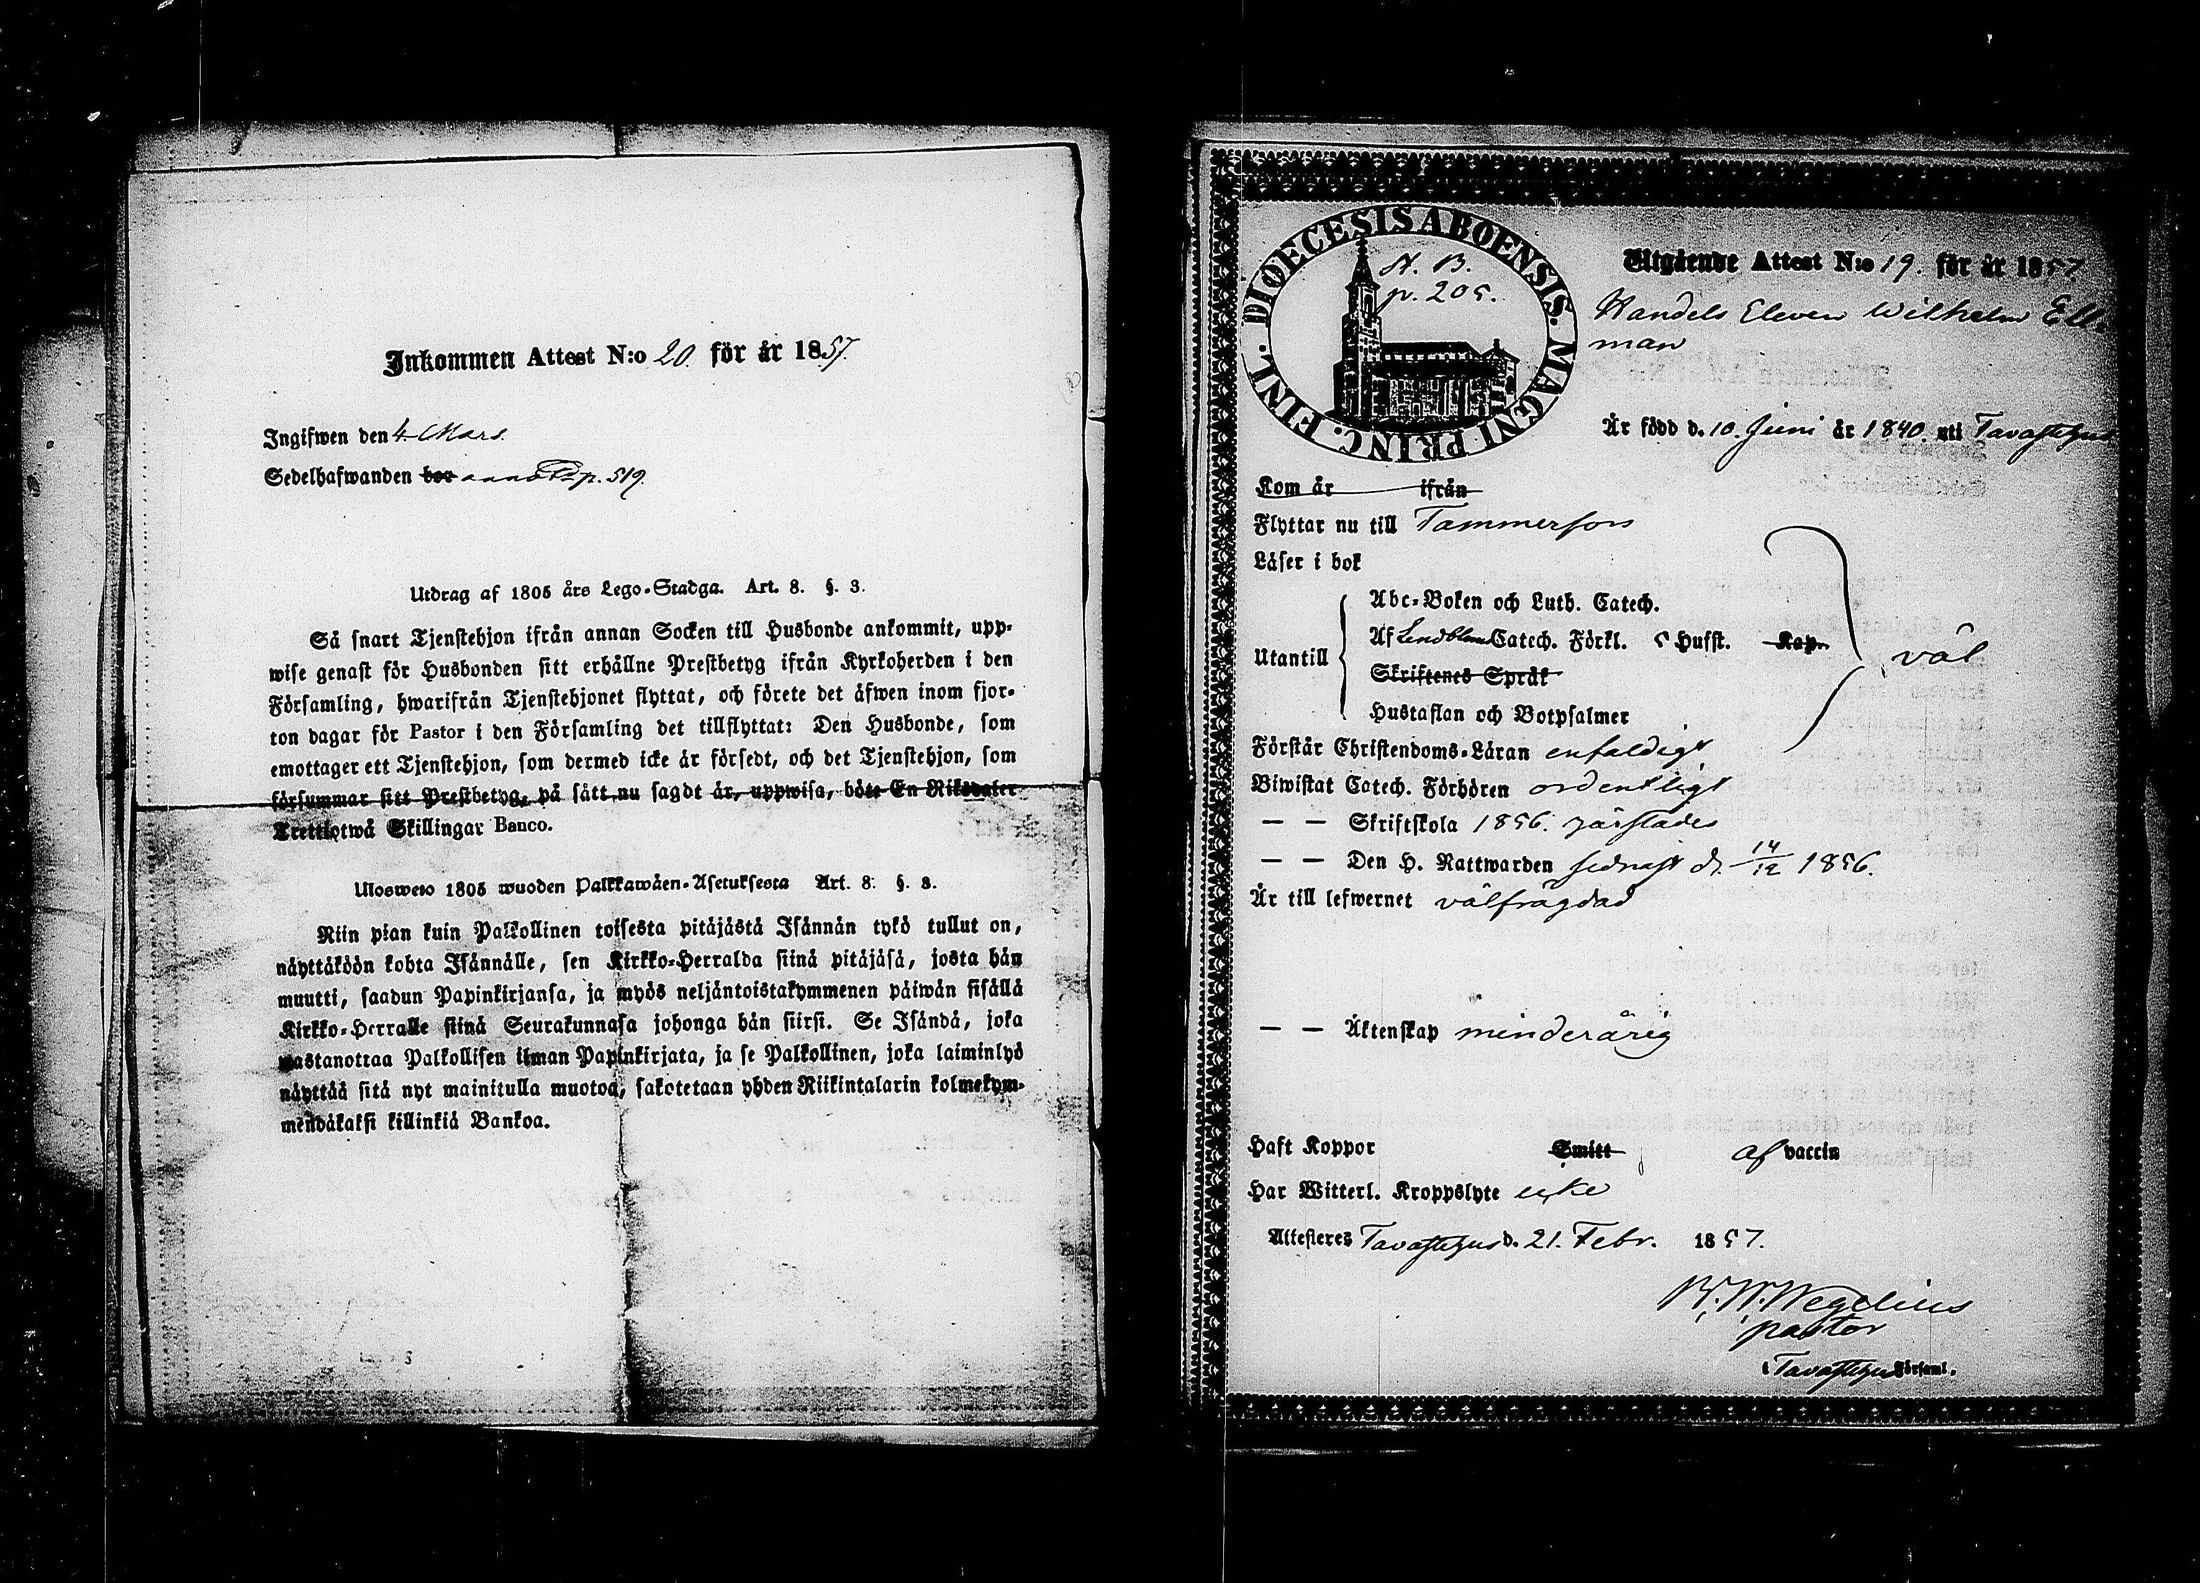 Inkommen Attest N:o 20. för år 1857.
Ingifwen den 4. Mars.
Sedelhafwanden bor p. 519.
Utdrag af 1805 års Lego-Stadga. Art. 8. §. 3.
Så snart Tjenstehjon ifrån annan Socken till Husbonde ankommit, upp-
wise genast för Husbonden sitt erhållne Prestbetyg ifrån Kyrkoherden i den
Församling, hwarifrån Tjenstehjonet flyttat, och förete det äfwen inom fjor-
ton dagar för Pastor i den Församling det tillflyttat: Den Husbonde, som
emottager ett Tjenstehjon, som dermed icke är försedt, och det Tjenstehjon, som
försummar sitt Prestbetyg, på sätt nu sagdt är, uppwisa, böte En Riksdaler
Trettiotwå Skillingar Banco.
Ulosweto 1805 wuoden Palkkawäen-Asetuksesta Art. 8. §. 3.
Niin pian kuin Palkollinen toisesta pitäjästä Isännän tykö tullut on,
näyttäköön kohta Isännälle, sen Kirkko-Herralda siinä pitäjäsä, josta hän
muutti, saadun Papinkirjansa, ja myös neljäntoistakymmenen päiwän sisällä
Kirkko-Herralle siinä Seurakunnasa johonga hän siirsi. Se Isändä, joka
wastanottaa Palkollisen ilman Papinkirjata, ja se Palkollinen, joka laiminlyö
näyttää sitä nyt mainitulla muotoa, sakotetaan yhden Riikintalarin kolmekym-
mendäkaksi killinkiä Bankoa.
DIOECESIS ABOENSIS. MAGNI PRINC. FINL.
p. 205.
Utgående Attest N:o 19. för år 1857.
Handels Eleven Wilhelm Ell-
man
Är född d. 10. Juni år 1840. uti Tavastehus
Kom år ifrån
Flyttar nu till Tammerfors
Läser i bok
Utantill
Abc-Boken och Luth. Catech.
Af Lindbloms Catech. Förkl. 5 Hufst. Kap.
Skriftenes Språk
Hustaflan och Botpsalmer
väl
Förstår Christendoms-Läran enfaldigt
Biwistat Catech. Förhören ordentligt
— — Skriftskola 1856.
— — Den H. Nattwarden sednast d. 14/12 1856.
Är till lefwernet välfrägdad
— — Äktenskap minderårig
Haft Koppor Smitt af vaccin
Har Witterl. Kroppslyte icke
Attesteres Tavastehus d. 21. Febr. 1857.
Wegelius
pastor
i Tavastehus Församl.